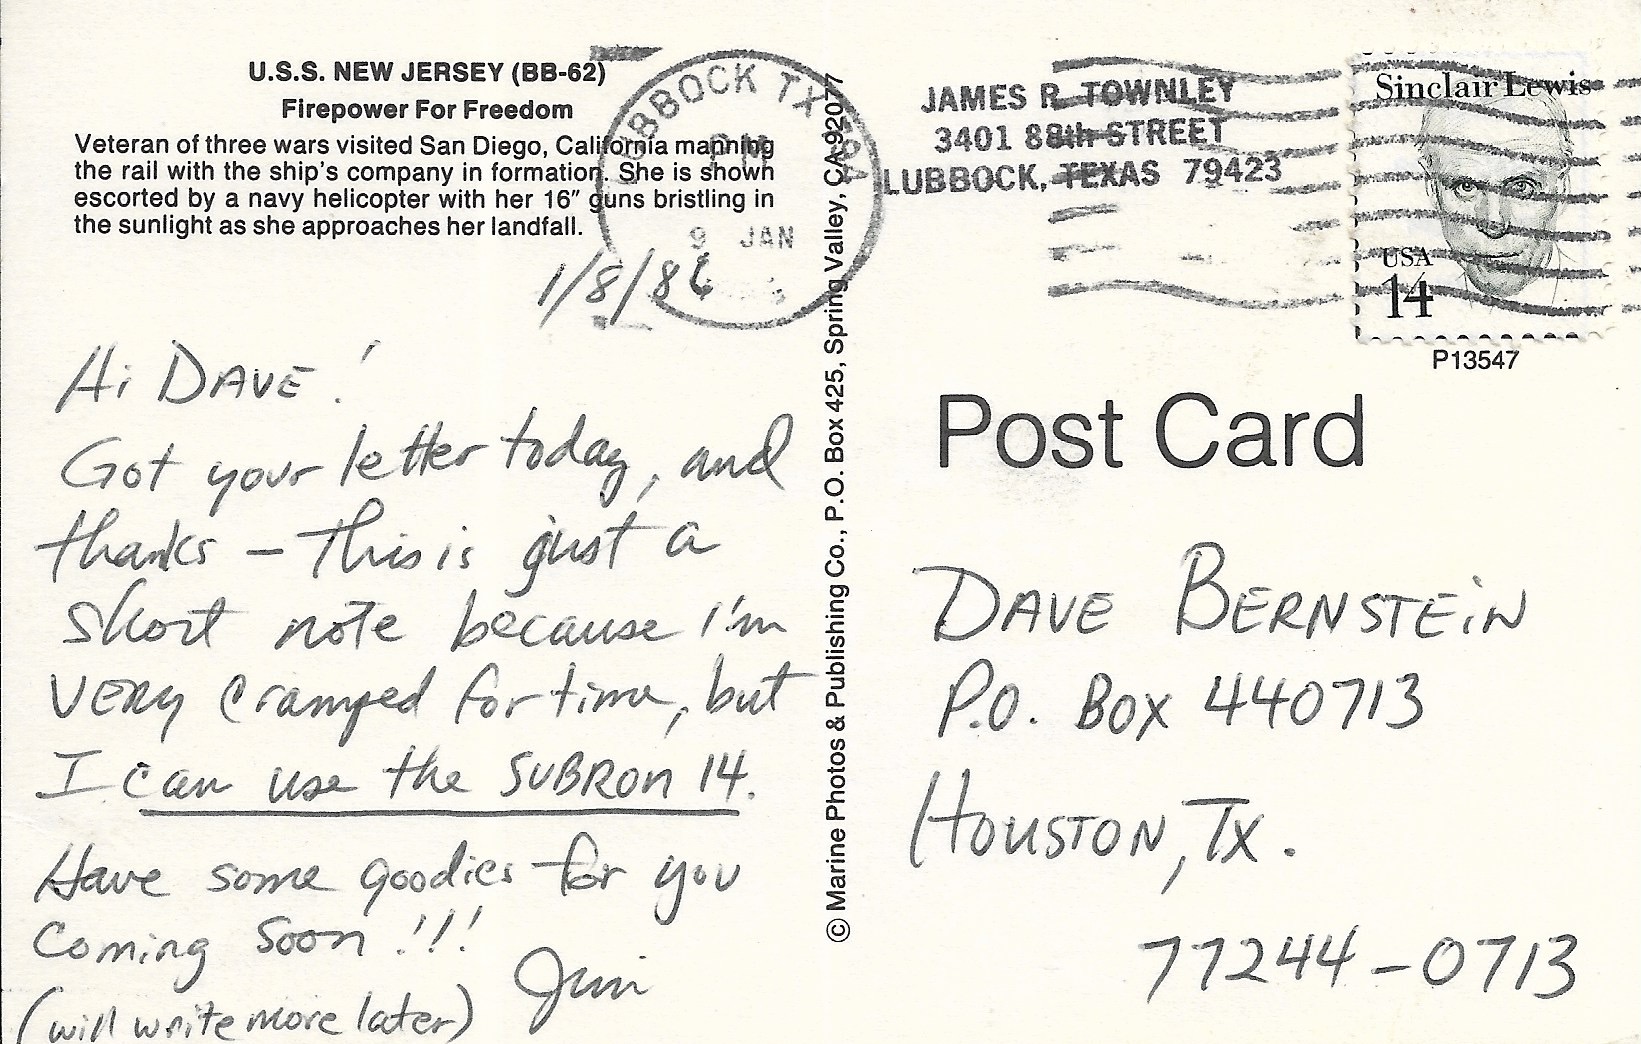 U.S.S. NEW JERSEY (BB-62)
Firepower For Freedom
Veteran of three wars visited San Diego, California manning
the rail with the ship's company in formation. She is shown
escorted by a navy helicopter with her 16" guns bristling in
the sunlight as she approaches her landfall.
1/8/86
Hi DAVE!
Got your letter today, and
thanks – This is just a
short note because I'm
VERY cramped for time, but
I can use the SUBRON 14.
Have some goodies for you
Coming Soon!!!
Jim
(will write more later)
LUBBOCK TX
PM
9 JAN
© Marine Photos & Publishing Co., P.O. Box 425, Spring Valley, CA 92077
JAMES R. TOWNLEY
3401 88th STREET
LUBBOCK, TEXAS 79423
Sinclair Lewis
USA
14
P13547
Post Card
DAVE BERNSTEiN
P.O. BOX 440713
HOUSTON, TX.
77244-0713